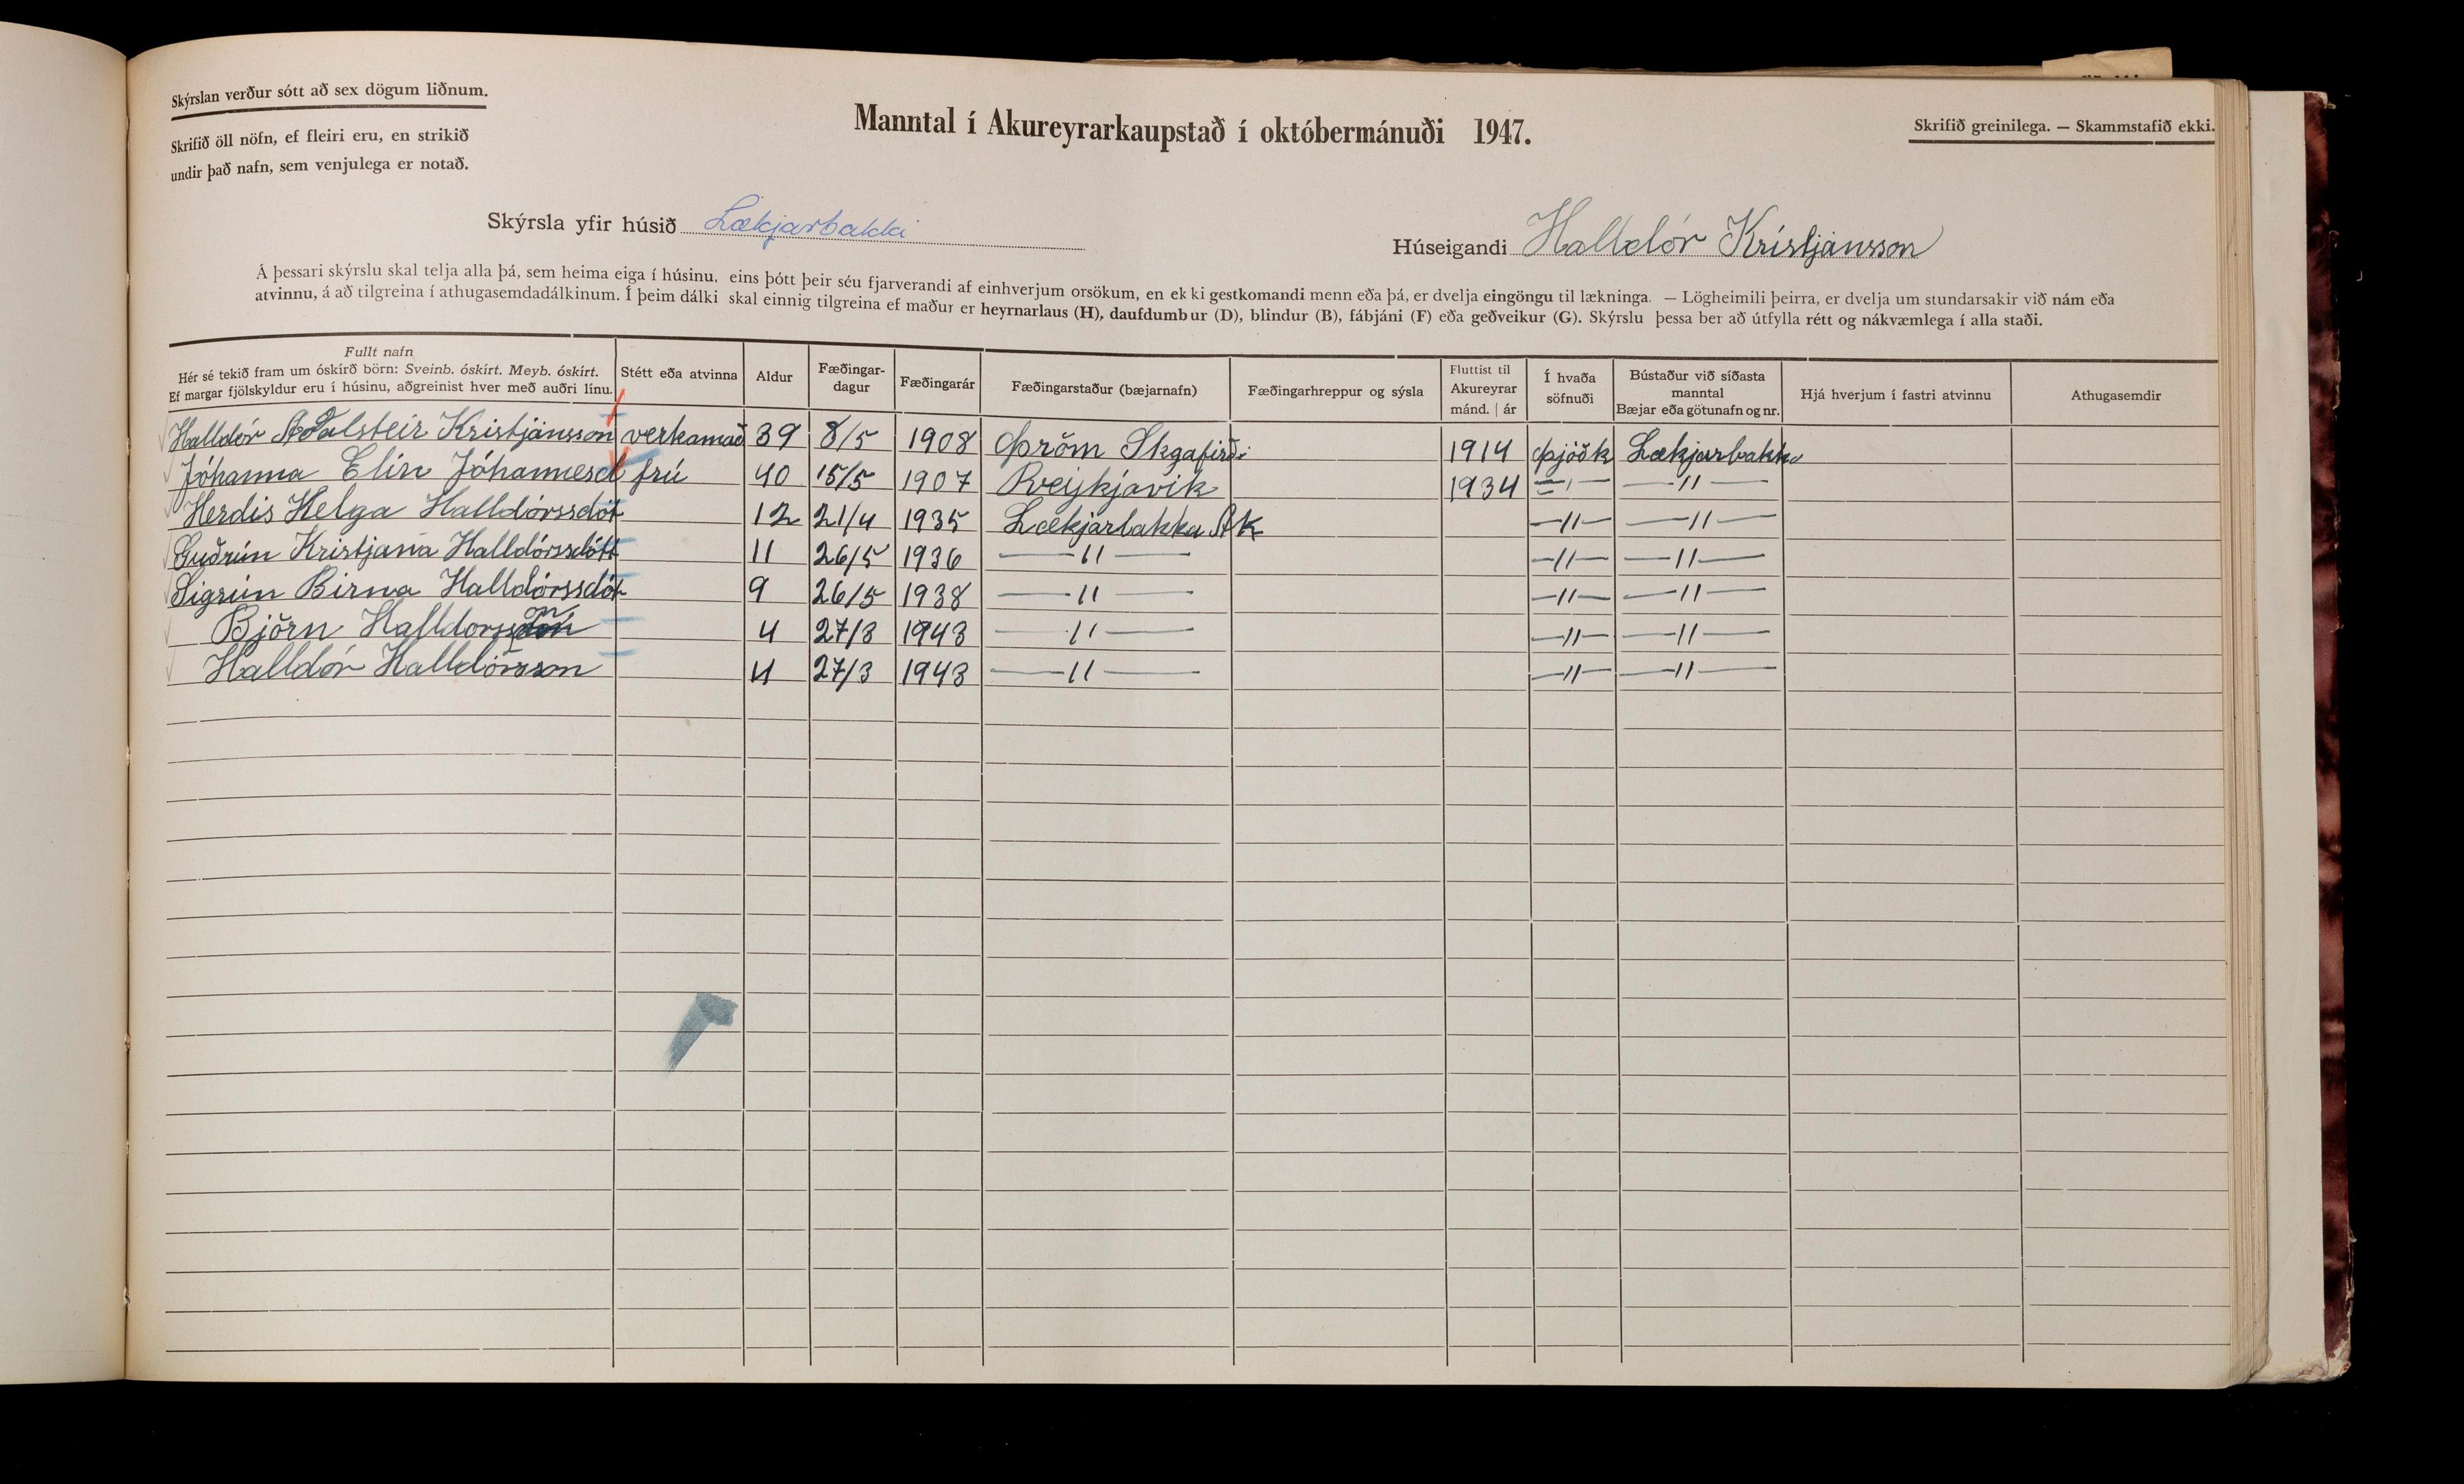 Skýrslan verður sótt að sex dögum liðnum.
Skrifið öll nöfn, ef fleiri eru, en strikið
undir það nafn, sem venjulega er notað.
Manntal í Akureyrarkaupstað í októbermánuði 1947.
Skrifið greinilega. — Skammstafið ekki.
Skýrsla yfir húsið Lækjarbakki
Húseigandi Halldór Kristjánsson
Á þessari skýrslu skal telja alla þá, sem heima eiga í húsinu, eins þótt þeir séu fjarverandi af einhverjum orsökum, en ekki gestkomandi menn eða þá, er dvelja eingöngu til lækninga. — Lögheimili þeirra, er dvelja um stundarsakir við nám eða
atvinnu, á að tilgreina í athugasemdadálkinum. Í þeim dálki skal einnig tilgreina ef maður er heyrnarlaus (H), daufdumbur (D), blindur (B), fábjáni (F) eða geðveikur (G). Skýrslu þessa ber að útfylla rétt og nákvæmlega í alla staði.
Fullt nafn
Hér sé tekið fram um óskírð börn: Sveinb. óskírt. Meyb. óskírt.
Ef margar fjölskyldur eru í húsinu, aðgreinist hver með auðri línu.
Stétt eða atvinna
Aldur
Fæðingar-
dagur
Fæðingarár
Fæðingarstaður (bæjarnafn)
Fæðingarhreppur og sýsla
Fluttist til
Akureyrar
mánd. | ár
Í hvaða
söfnuði
Bústaður við síðasta
manntal
Bæjar eða götunafn og nr.
Hjá hverjum í fastri atvinnu
Athugasemdir
Halldór Aðalsteir Kristjánsson verkamað 39 8/5 1908 Þröm Skgafirði 1914 þjóðk Lækjarbakka
Jóhanna Elín Jóhannesd frú 40 15/5 1907 Reykjavik 1934 —11— —11—
Herdis Helga Halldórssdót 12 21/4 1935 Lækjarbakka Ak —11— —11—
Guðrún Kristjana Halldórssdótt 11 26/5 1936 —11— —11— —11—
Sigrún Birna Halldórssdót 9 26/5 1938 —11— —11— —11—
Björn Halldorsson 4 27/3 1943 —11— —11— —11—
Halldór Halldórsson 4 27/3 1943 —11— —11— —11—